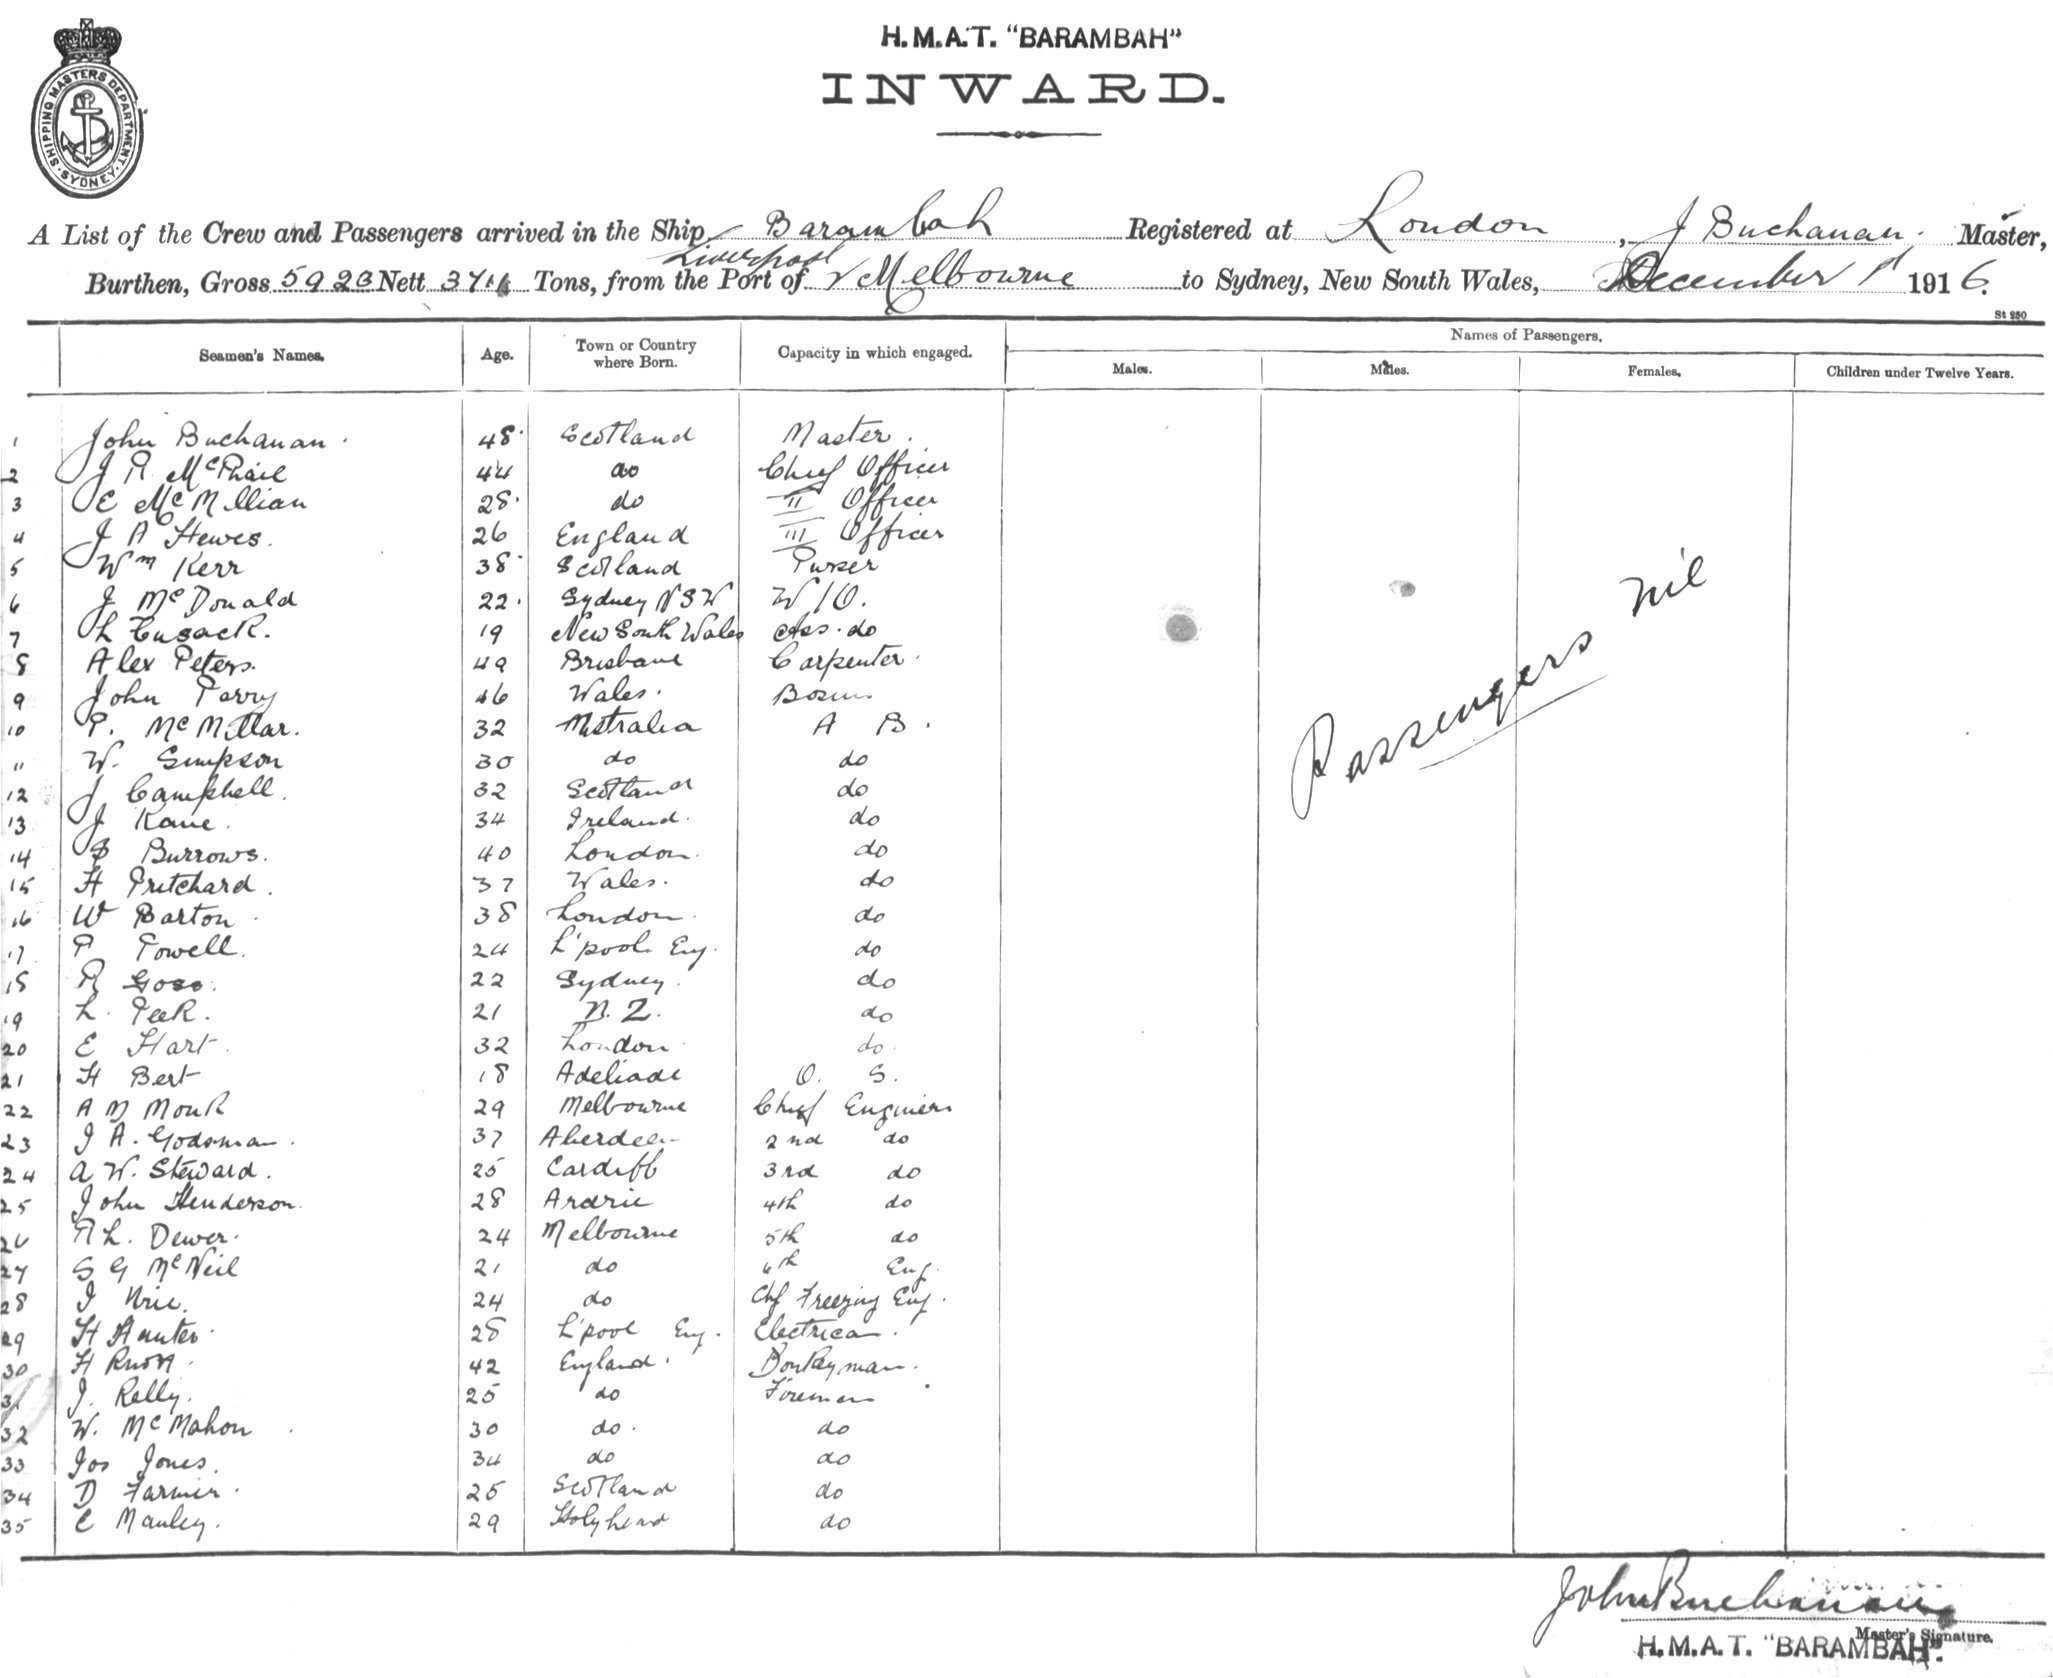 H.M.A.T. "BARAMBAH"
INWARD.
SHIPPING MASTERS DEPARTMENT. SYDNEY.
A List of the Crew and Passengers arrived in the Ship Barambah Registered at London, J Buchanan. Master,
Liverpool
Burthen, Gross 5923 Nett Tons, from the Port of Melbourne to Sydney, New South Wales, December 1st 1916.
St 250
Seamen's Names. Age. Town or Country where Born. Capacity in which engaged. Names of Passengers.
Males. Males. Females. Children under Twelve Years.
1 John Buchanan. 48. Scotland Master.
2 J R McPhail 44 do Chief Officer
3 E McMillian 28. do II Officer
4 J A Hewes. 26 England III Officer
5 Wm Kerr 38 Scotland Purser
6 J McDonald 22. Sydney NSW W/O.
7 L Cusack. 19 New South Wales Ass. do
8 Alex Peters. 49 Brisbane Carpenter.
9 John Parry 46 Wales. Bosun
10 P. McMillar. 32 Australia A B.
11 W. Simpson 30 do do
12 J Campbell. 32 Scotland do
13 J Kane. 34 Ireland. do
14 Burrows. 40 London. do
15 H Pritchard. 37 Wales. do
16 W Barton. 38 London. do
17 P Powell. 24 L'pool Eng. do
18 R Goss. 22 Sydney. do
19 L. Peek. 21 N.Z. do
20 E Hart. 32 London do.
21 H Bert 18 Adeliade O. S.
22 A M Monk 29 Melbourne Chief Engineer
23 J A. Godsman. 37 Aberdeen 2nd do
24 A W. Steward. 25 Cardiff 3rd do
25 John Henderson. 28 Ardrie 4th do
26 R L. Dewer. 24 Melbourne 5th do
27 S G McNeil 21 do 6th Eng.
28 J 24 do Chf Freezing Eng.
29 H Hunter. 28 L'pool Eng. Electrican.
30 H Knott. 42 England. Donkeyman.
31 J. Kelly. 25 do Firemen
32 W. McMahon 30 do. do
33 Jos Jones. 34 do do
34 D Farmer. 25 Scotland do
35 C Manley. 29 Holyhead do
Passengers nil
John Buchanan
Master's Signature.
H.M.A.T. "BARAMBAH".